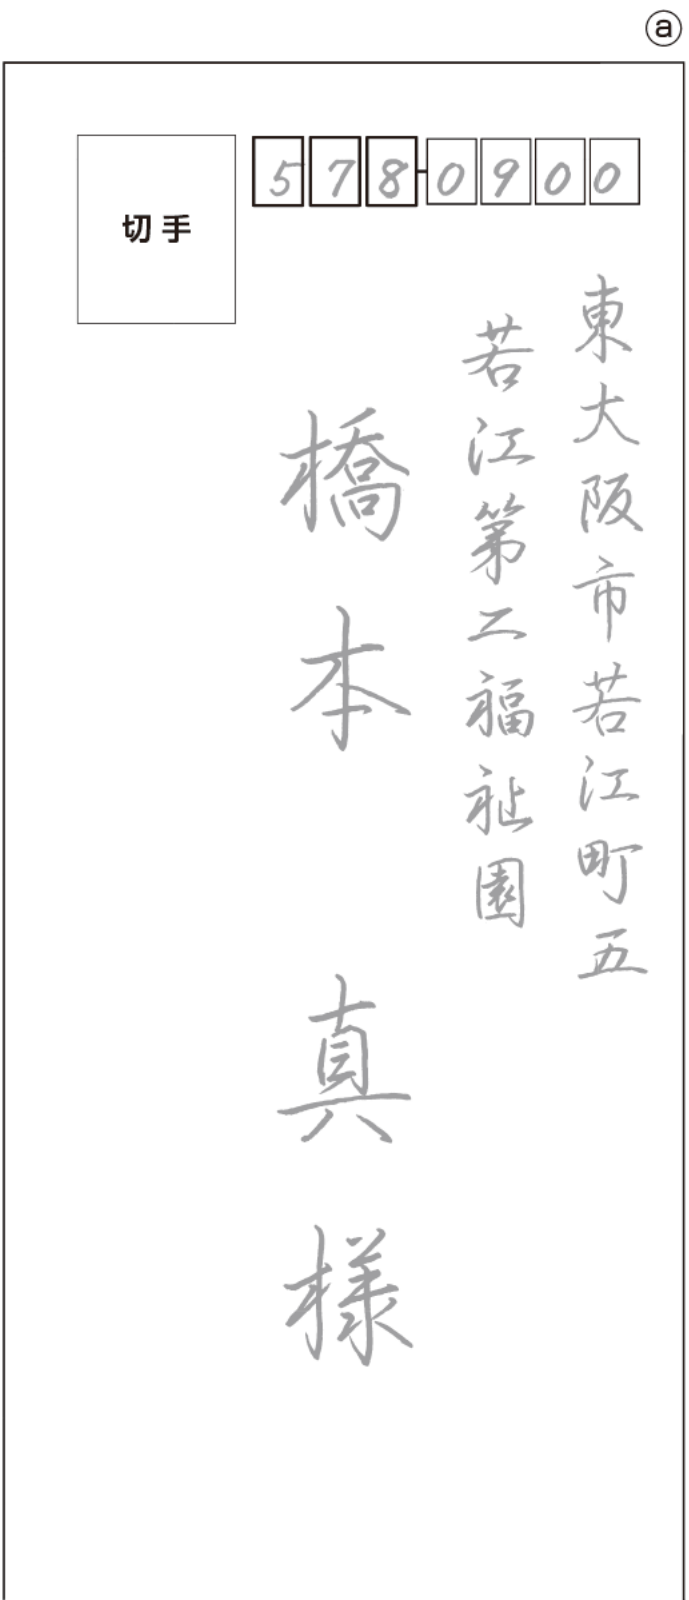 ⓐ
切手
578-0900
東大阪市若江町五
若江第二福祉園
橋本 真様